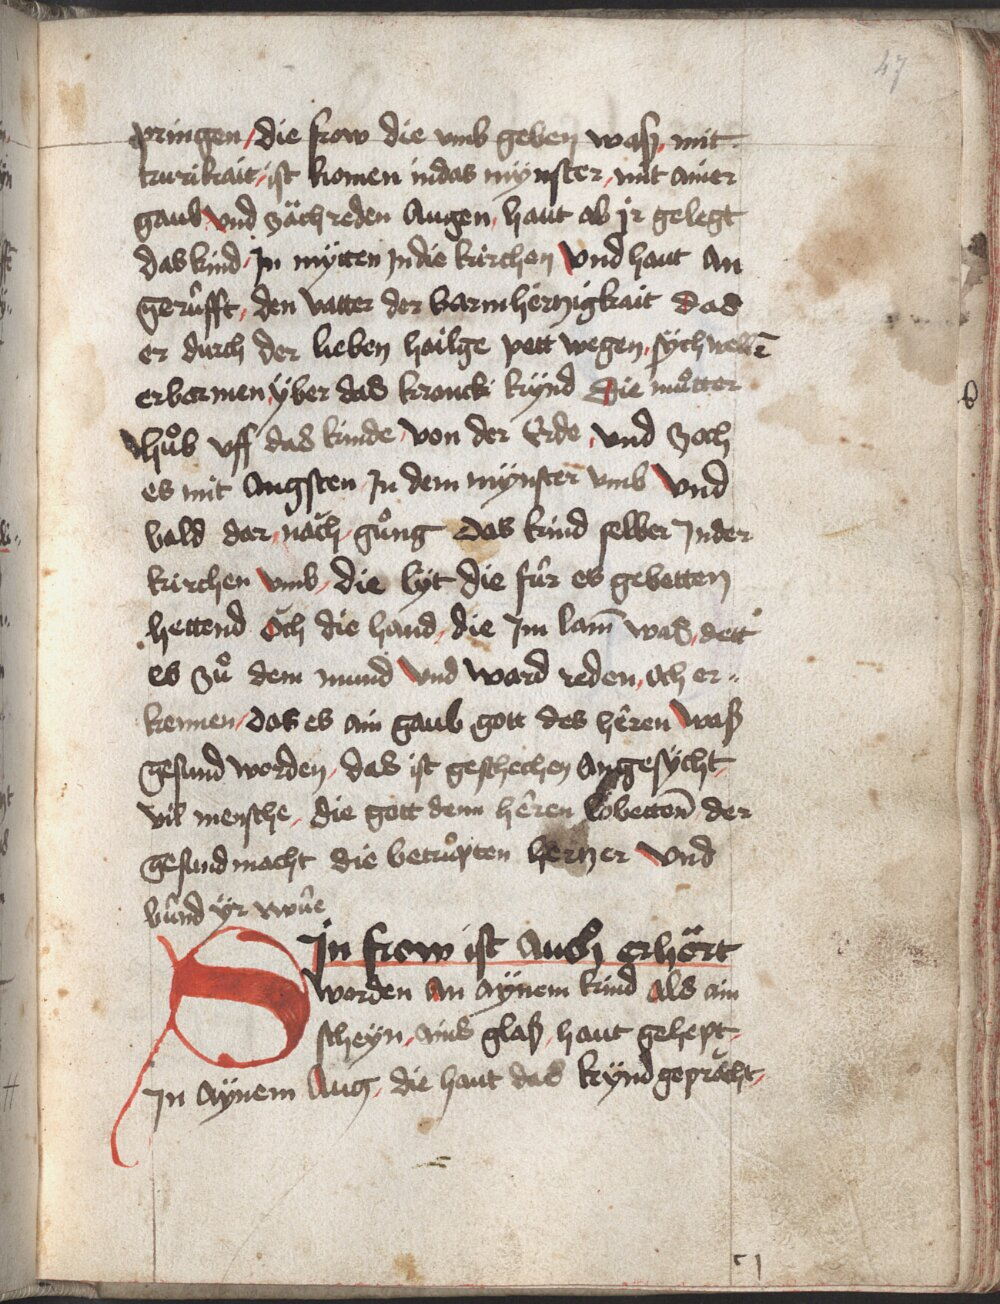 47
pringen / die frow die vmb geben waß, mit
trurikait, ist komen indas mÿnster, mit ainer
gaub vnd zächreden Augen, haut ab jr gelegt
das kind, Jn mÿtten Jndie kirchen Vnd haut An
gerûfft, den vatter der barmhertzigkait Das
er durch der lieben hailge pett wegen, sÿch
erbarmen, ÿber das kranck kÿnd Die můtter
hůb vff das kinde, von der Erde, vnd zoch
es mit Angsten Jn dem mÿnster vmb Vnd
bald dar, nach, gůng Das kind selber Jnder
kirchen vmb, die lÿt die fûr es gebetten
hettend och die hand, die Jm lam̄ was, dett
es zů dem mund Vnd ward reden, och er⸗
kennen, das es ain gaub gott des hêren waß
gesund worden, das ist geschechen Angesÿcht,
vil mensche, die gott dem hêren lobetten̄ der
gesund macht die betrůpten hertzer Vnd
bûnd ÿr wûe
Jn frow ist Auch erhört
worden An aÿnem kind Als ain
scheÿn, ains glaß, haut gehept,
Jn Aÿnem Aug, die haut das kÿnd gepràcht,